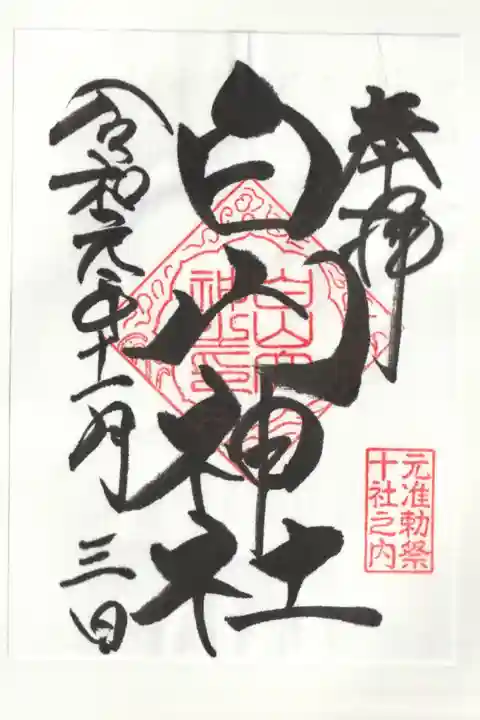 奉拝
白山神社
令和元年十一月三日
元准勅祭
十社之内